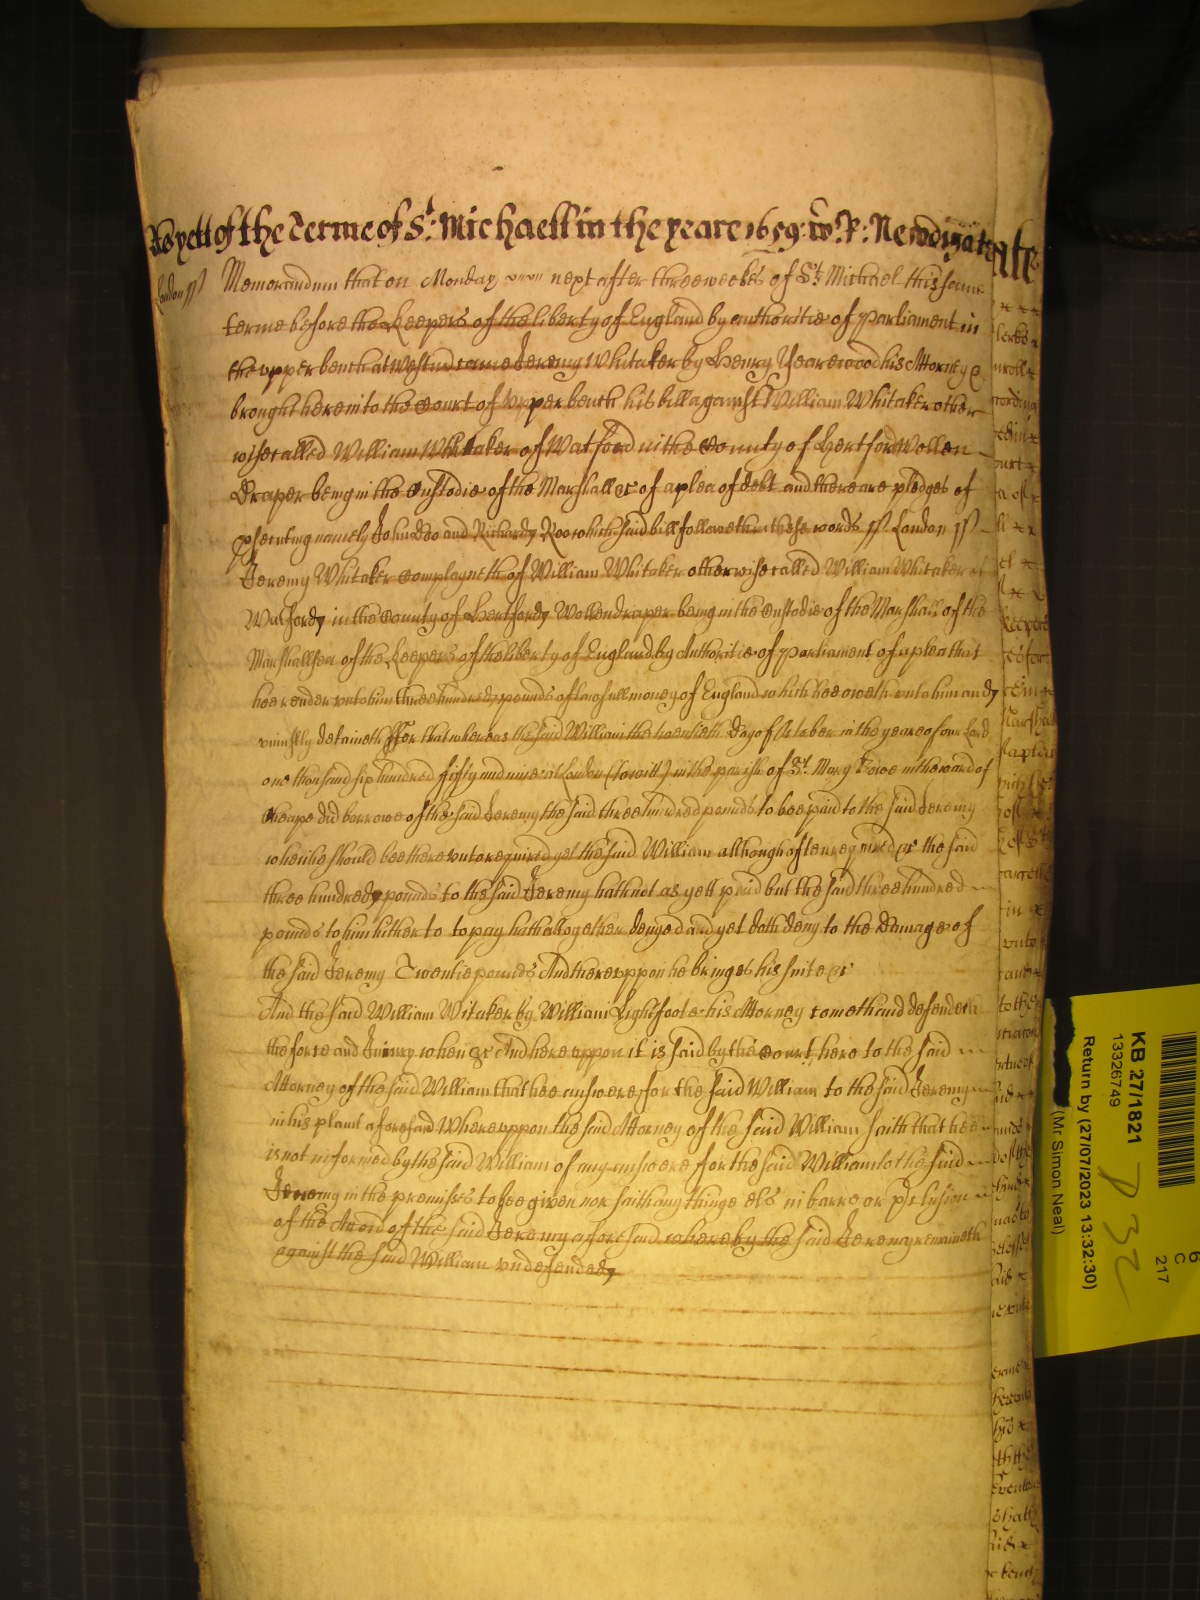 As yett of the Terme of St: Michaell in the yeare 1659: R: Newdigate
London ss Memorandum that on Monday next after three weekes of St: Michael this same
terme before the Keepers of the liberty of England by authoritie of parliament in
the upper bench at Westm came Jeremy Whitaker by Henry Yearewood his Attorney &
brought here into the Court of Upper bench his bill against William Whitaker other
wise called William Whitaker of Watford in the County of Hertford Wollen
Draper being in the Custodie of the Marshall &c of a plea of debt and there are pledges of
psecuting namely John Doo and Richard Roo which said bill followeth in these words ss London ss
Jeremy Whitaker Complayneth of William Whitaker otherwise called William Whitaker of
Watford in the County of Hertford Wollendraper being in the Custodie of the Marshall of the
Marshallsea of the Keepers of the liberty of England by Authoritie of parliament of a plea that
hee render unto him three hundred pounds of lawfull money of England which hee oweth unto him and
uniustly detaineth ffor that whereas the said William the twentieth day of October in the yeare of our Lord
one thousand six hundred fifty and nine at London (to witt) in the parish of St. Mary Bowe in the ward of
Cheape did borrowe of the said Jeremy the said three hundred pounds to bee paid to the said Jeremy
when he should bee thereunto required yet the said William although often required &c the said
three hundred pounds to the said Jeremy hath not as yett paid but the said three hundred
pounds to him hither to to pay hath altogether denyed and yet doth deny to the Damage of
the said Jeremy Twentie pounds And thereuppon he bringes his suite &c
And the said William Witaker by William Lightfoote his Attorney cometh and defendeth
the force and Iniury when &c And hereuppon it is said by the Court here to the said
Attorney of the said William that hee answere for the said William to the said Jeremy
in his plaint aforesaid Whereuppon the said Attorney of the said William saith that hee
is not informed by the said William of any answere for the said William to the said
Jeremy in the premisses to bee given nor saith any thinge els in barre or pclusion
of the Accon of the said Jeremy aforesaid whereby the said Jeremy remaineth
against the said William undefended
KB 27/1821
13326749
Return by (27/07/2023 13:32:30)
(Mr Simon Neal)
6
C
217
P 32